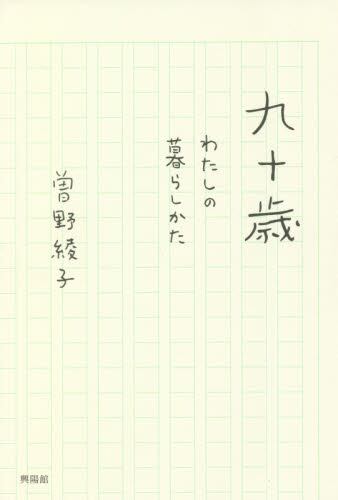 九十歳
わたしの
暮らしかた
曽野綾子
興陽館